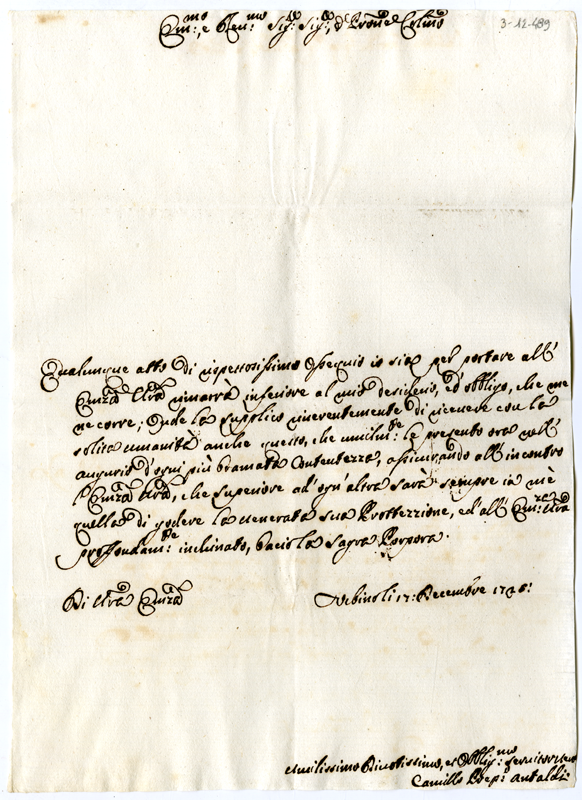 3-12-489
Em:mo, e Reu:mo Sig:r Sig:r, e Pron e Colmo
Qualunque atto di rispettosissimo ossequio io sia per portare all'
Emza Vra rimarrà inferiore al mio desiderio, ed' obbligo, che me
ne corre; onde la supplico riverentemente di ricevere con la
solita umanità anche questo, che umilm:te le presento ora nell'
augurio d'ogni più bramata Contentezza, assicurando all'incontro
l'Emza Vra, che superiore ad' ogn'altra sarà sempre in mè
quella di godere la venerata sua Protezzione, ed' all' Em:za Vra
profondam:te inchinato, bacio la Sagra Porpora.
Di Vra Emza
Urbino li 17: Decembre
Umilissimo Divotissimo, et Obblig:mo Servitor
Camillo Antaldi